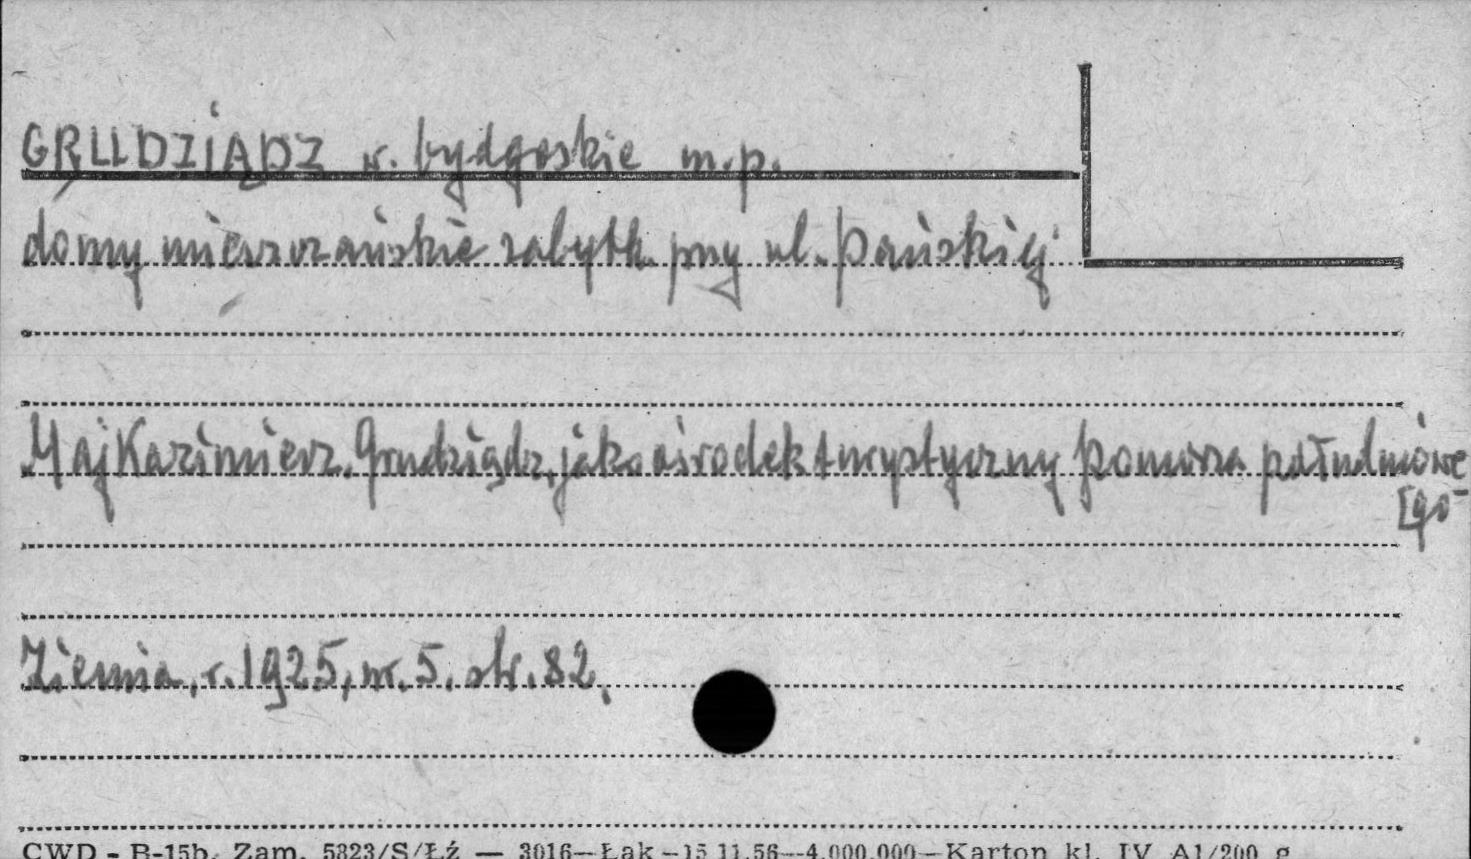 GRUDZIĄDZ w. bydgoskie m.p.
domy mieszczańskie zabytk. przy ul. Pańskiej
Maj Kazimierz. Grudziądz, jako ośrodek turystyczny Pomorza południowe
[go-
Ziemia, r. 1925, nr. 5. str. 82.
CWD - B-15b. Zam. 5823/S/Łź — 3016—Łąk—15.11.56—4.000.000—Karton kl. IV A1/200 g